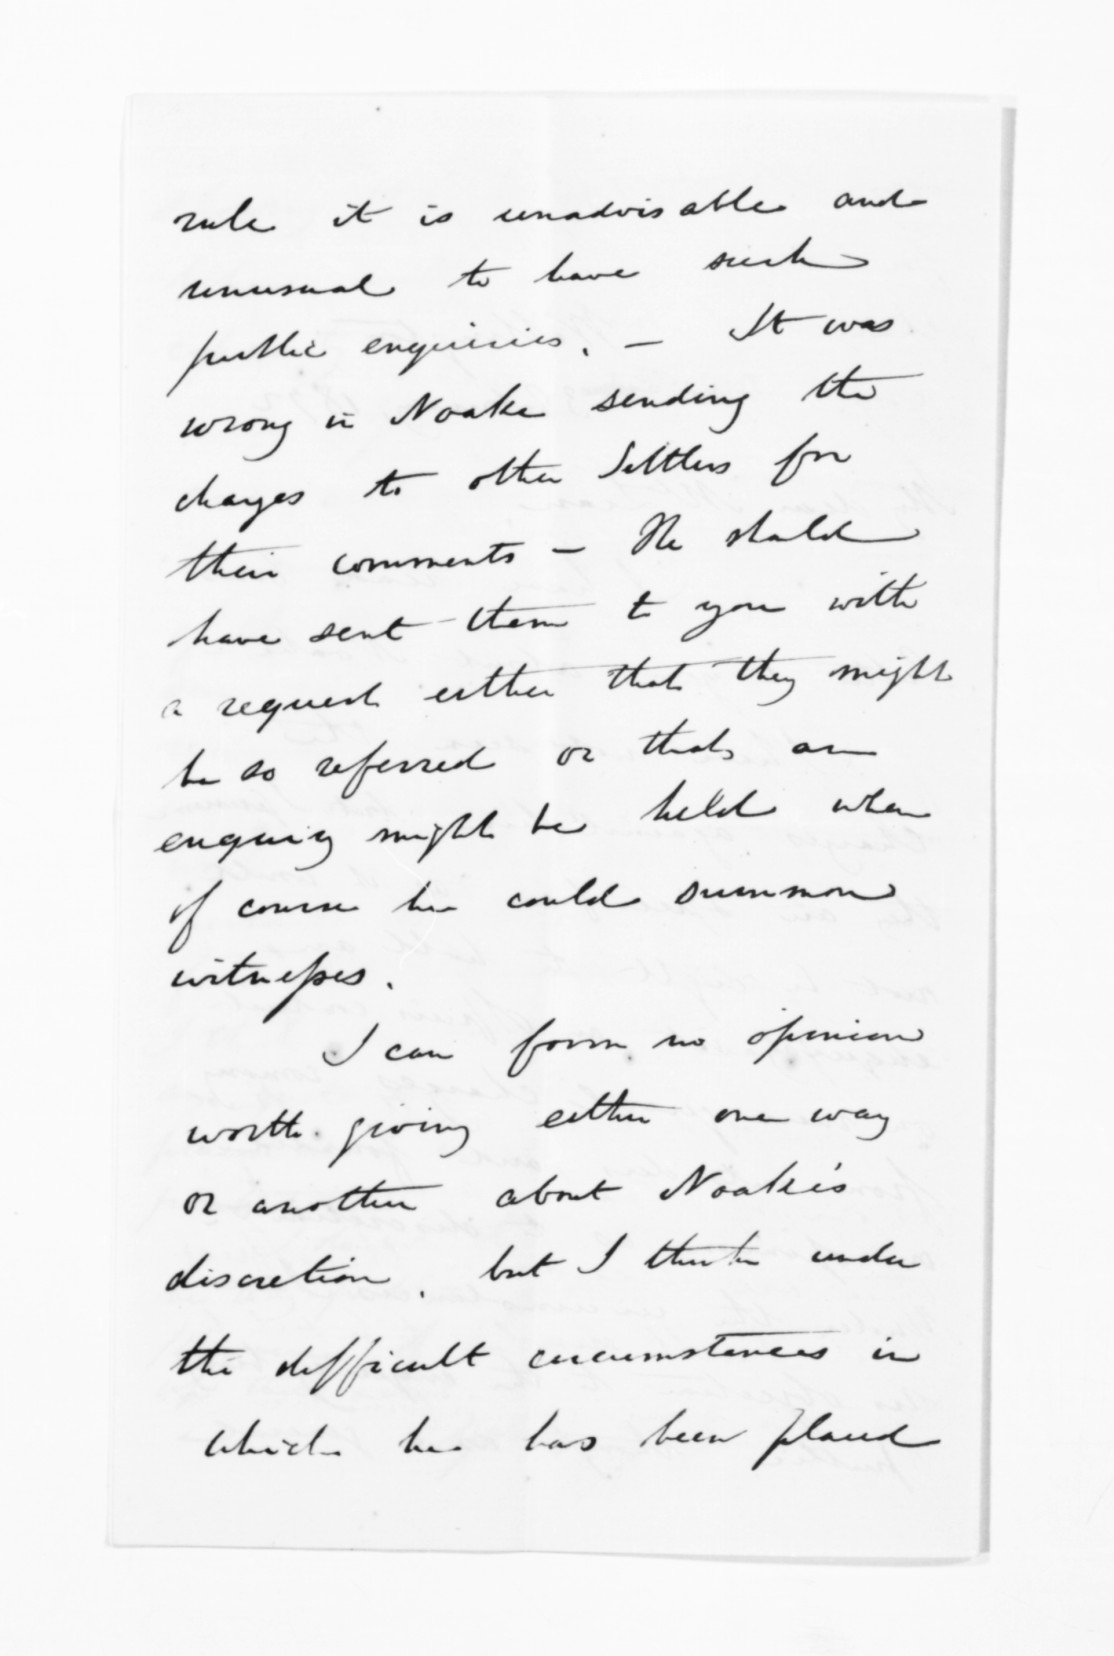 rule it is unadvisable and
unusual to have such
public enquiries. — It was
wrong in Noake sending the
charges to other Settlers for
their comments — He should
have sent them to you with
a request either that they might
be so referred or that an
enquiry might be held when
of course he could summon
witnesses.
I can form no opinion
worth giving either one way
or another about Noake's
discretion, but I think under
the difficult circumstances in
which he has been placed